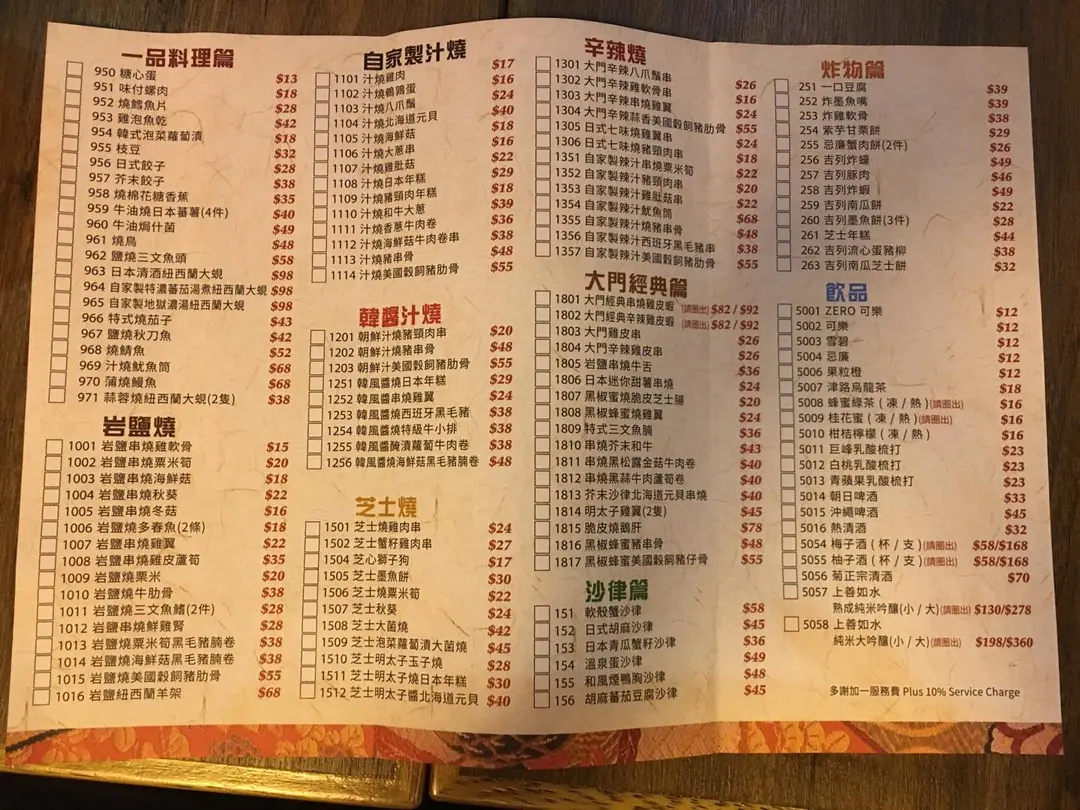 一品料理篇
950 糖心蛋 $13
951 味付螺肉 $18
952 燒鱈魚片 $28
953 雞泡魚乾 $42
954 韓式泡菜蘿蔔漬 $18
955 枝豆 $32
956 日式餃子 $28
957 芥末餃子 $38
958 燒棉花糖香蕉 $35
959 牛油燒日本蕃薯(4件) $40
960 牛油焗什菌 $49
961 燒鳥 $48
962 鹽燒三文魚頭 $58
963 日本清酒紐西蘭大蜆 $98
964 自家製特濃蕃茄湯煮紐西蘭大蜆 $98
965 自家製地獄濃湯紐西蘭大蜆 $98
966 特式燒茄子 $43
967 鹽燒秋刀魚 $42
968 燒鯖魚 $52
969 汁燒魷魚筒 $68
970 蒲燒鰻魚 $68
971 蒜蓉燒紐西蘭大蜆(2隻) $38
岩鹽燒
1001 岩鹽串燒雞軟骨 $15
1002 岩鹽串燒粟米筍 $20
1003 岩鹽串燒海鮮菇 $18
1004 岩鹽串燒秋葵 $22
1005 岩鹽串燒冬菇 $16
1006 岩鹽燒多春魚(2條) $18
1007 岩鹽串燒雞翼 $22
1008 岩鹽串燒雞皮蘆筍 $35
1009 岩鹽燒粟米 $20
1010 岩鹽燒牛肋骨 $38
1011 岩鹽燒三文魚鰭(2件) $28
1012 岩鹽串燒鮮雞腎 $28
1013 岩鹽燒粟米筍黑毛豬腩卷 $38
1014 岩鹽燒海鮮菇黑毛豬腩卷 $38
1015 岩鹽燒美國穀飼豬肋骨 $55
1016 岩鹽紐西蘭羊架 $68
自家製汁燒
1101 汁燒雞肉 $17
1102 汁燒鵪鶉蛋 $16
1103 汁燒八爪鬚 $24
1104 汁燒北海道元貝 $40
1105 汁燒海鮮菇 $18
1106 汁燒大蔥串 $16
1107 汁燒雞肶菇 $22
1108 汁燒日本年糕 $29
1109 汁燒豬頸肉年糕 $18
1110 汁燒和牛大蔥 $39
1111 汁燒香蔥牛肉卷 $36
1112 汁燒海鮮菇牛肉卷串 $38
1113 汁燒豬串骨 $48
1114 汁燒美國穀飼豬肋骨 $55
韓醬汁燒
1201 朝鮮汁燒豬頸肉串 $20
1202 朝鮮汁燒豬串骨 $48
1203 朝鮮汁美國穀飼豬肋骨 $55
1251 韓風醬燒日本年糕 $29
1252 韓風醬串燒雞翼 $24
1253 韓風醬燒西班牙黑毛豬 $38
1254 韓風醬燒特級牛小排 $38
1255 韓風醬醃漬蘿蔔牛肉卷 $38
1256 韓風醬燒海鮮菇黑毛豬腩卷 $48
芝士燒
1501 芝士燒雞肉串 $24
1502 芝士蟹籽雞肉串 $27
1504 芝心獅子狗 $17
1505 芝士墨魚餅 $30
1506 芝士燒粟米筍 $22
1507 芝士秋葵 $24
1508 芝士大菌燒 $42
1509 芝士泡菜蘿蔔漬大菌燒 $45
1510 芝士明太子玉子燒 $28
1511 芝士明太子燒日本年糕 $30
1512 芝士明太子醬北海道元貝 $40
辛辣燒
1301 大門辛辣八爪鬚串 $26
1302 大門辛辣雞軟骨串 $16
1303 大門辛辣串燒雞翼 $24
1304 大門辛辣蒜香美國穀飼豬肋骨 $55
1305 日式七味燒雞翼串 $24
1306 日式七味燒豬頸肉串 $18
1351 自家製辣汁串燒粟米筍 $22
1352 自家製辣汁豬頸肉串 $20
1353 自家製辣汁雞肶菇串 $22
1354 自家製辣汁魷魚筒 $68
1355 自家製辣汁燒豬串骨 $48
1356 自家製辣汁西班牙黑毛豬串 $38
1357 自家製辣汁美國穀飼豬肋骨 $55
大門經典篇
1801 大門經典串燒雞皮蝦 (請圈出) $82 / $92
1802 大門經典辛辣雞皮蝦 (請圈出) $82 / $92
1803 大門雞皮串 $26
1804 大門辛辣雞皮串 $26
1805 岩鹽串燒牛舌 $36
1806 日本迷你甜薯串燒 $24
1807 黑椒蜜燒脆皮芝士腸 $20
1808 黑椒蜂蜜燒雞翼 $24
1809 特式三文魚腩 $36
1810 串燒芥末和牛 $43
1811 串燒黑松露金菇牛肉卷 $40
1812 串燒黑蒜牛肉蘆筍卷 $40
1813 芥末沙律北海道元貝串燒 $40
1814 明太子雞翼(2隻) $45
1815 脆皮燒鵝肝 $78
1816 黑椒蜂蜜豬串骨 $48
1817 黑椒蜂蜜美國穀飼豬仔骨 $55
沙律篇
151 軟殼蟹沙律 $58
152 日式胡麻沙律 $45
153 日本青瓜蟹籽沙律 $36
154 溫泉蛋沙律 $49
155 和風煙鴨胸沙律 $48
156 胡麻蕃茄豆腐沙律 $45
炸物篇
251 一口豆腐 $39
252 炸墨魚嘴 $39
253 炸雞軟骨 $38
254 紫芋甘栗餅 $29
255 忌廉蟹肉餅(2件) $26
256 吉列炸蠔 $49
257 吉列豚肉 $46
258 吉列炸蝦 $49
259 吉列南瓜餅 $22
260 吉列墨魚餅(3件) $28
261 芝士年糕 $44
262 吉列流心蛋豬柳 $38
263 吉列南瓜芝士餅 $32
飲品
5001 ZERO 可樂 $12
5002 可樂 $12
5003 雪碧 $12
5004 忌廉 $12
5006 果粒橙 $12
5007 津路烏龍茶 $18
5008 蜂蜜綠茶 ( 凍 / 熱 )(請圈出) $16
5009 桂花蜜 ( 凍 / 熱 )(請圈出) $16
5010 柑桔檸檬 ( 凍 / 熱 ) $16
5011 巨峰乳酸梳打 $23
5012 白桃乳酸梳打 $23
5013 青蘋果乳酸梳打 $23
5014 朝日啤酒 $33
5015 沖繩啤酒 $45
5016 熱清酒 $32
5054 梅子酒 ( 杯 / 支 )(請圈出) $58/$168
5055 柚子酒 ( 杯 / 支 )(請圈出) $58/$168
5056 菊正宗清酒 $70
5057 上善如水
熟成純米吟釀(小 / 大)(請圈出) $130/$278
5058 上善如水
純米大吟釀(小 / 大)(請圈出) $198/$360
多謝加一服務費 Plus 10% Service Charge